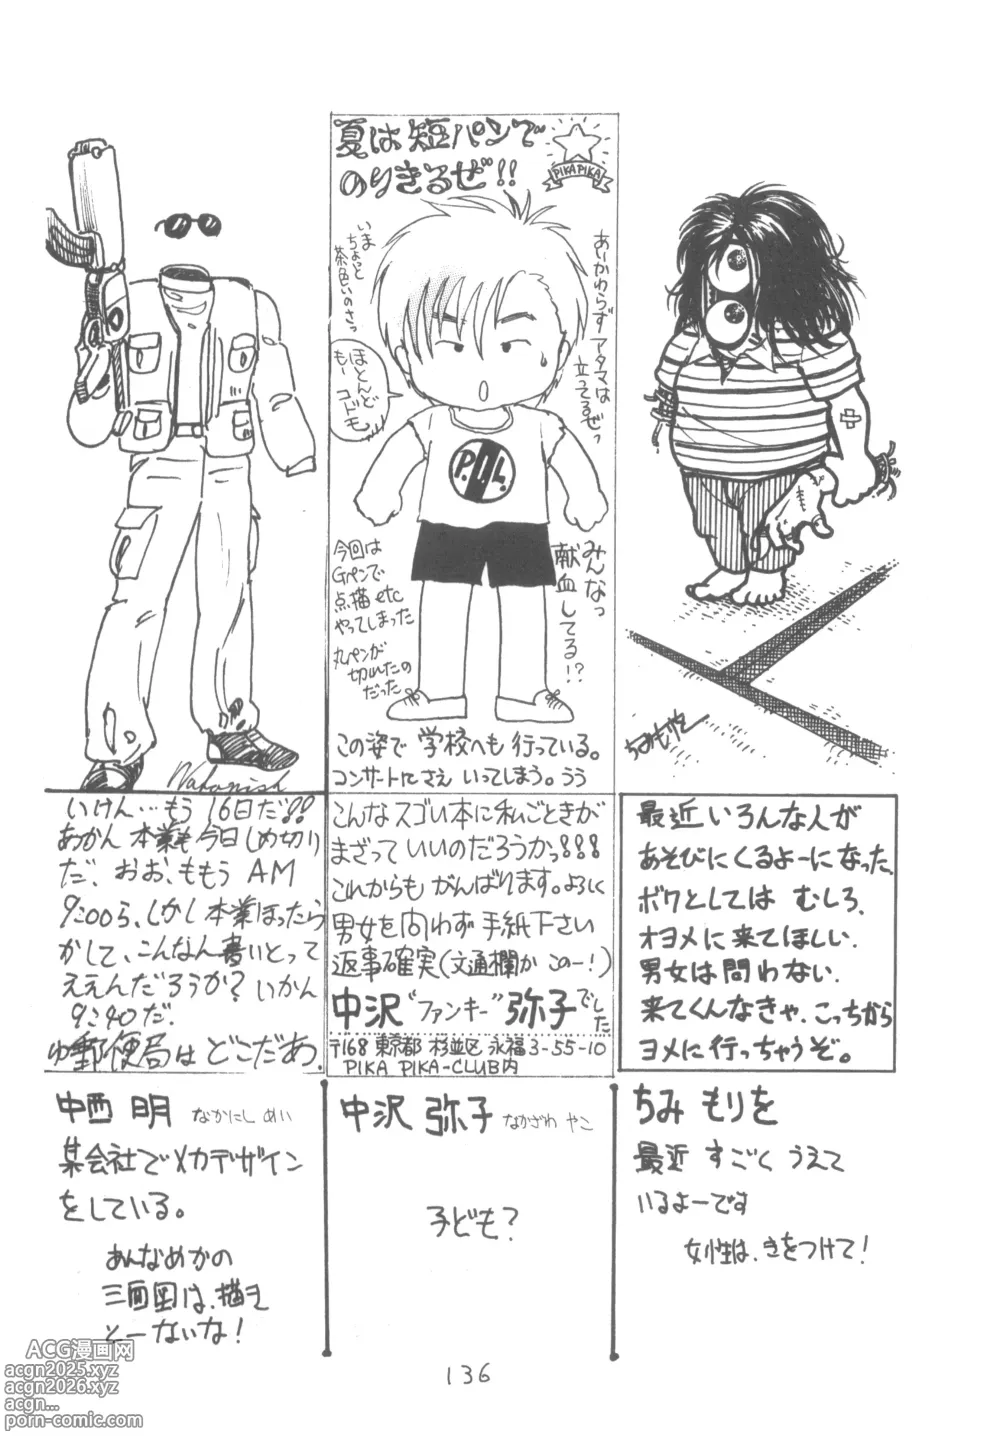 夏は短パンで
のりきるぜ!!
PIKA PIKA
いま
ちょっと
茶色いのさっ
あーかわらずアタマは
立ってるぜっ
ほとんど
もー
コドモ
P.I.L.
今回は
Gペンで
点描etc
やってしまった
丸ペンが
切れたの
だった
みんなっ
献血してる!?
この姿で学校へも行っている。
コンサートにさえいってしまう。うう
Nakanishi
ちみもりを
いけん…もう16日だ!!
あかん本業も今日しめ切り
だ、おお、ももうAM
9:00ら、しかし本業ほったら
かして、こんなん書いとって
ええんだろうか?いかん
9:40だ.
ゆ郵便局はどこだあ.
こんなスゴい本に私ごときが
まざっていいのだろうかっ!!!
これからもがんばります。よろしく
男女を問わず手紙下さい
返事確実(文通欄かこのー!)
中沢"ファンキー"弥子でした
〒168 東京都杉並区永福3-55-10
PIKA PIKA-CLUB内
最近いろんな人が
あそびにくるよーになった。
ボクとしてはむしろ、
オヨメに来てほしい.
男女は問わない.
来てくんなきゃ、こっちから
ヨメに行っちゃうぞ。
中西 明 なかにし めい
某会社でメカデザイン
をしている。
あんなめかの
三面図は、描き
とーないな!
中沢 弥子 なかざわ やこ
子ども?
ちみ もりを
最近 すごく うえて
いるよーです
女性は、きをつけて!
136
ACG漫画网
acgn2025.xyz
acgn2026.xyz
acgn...
porn-comic.com